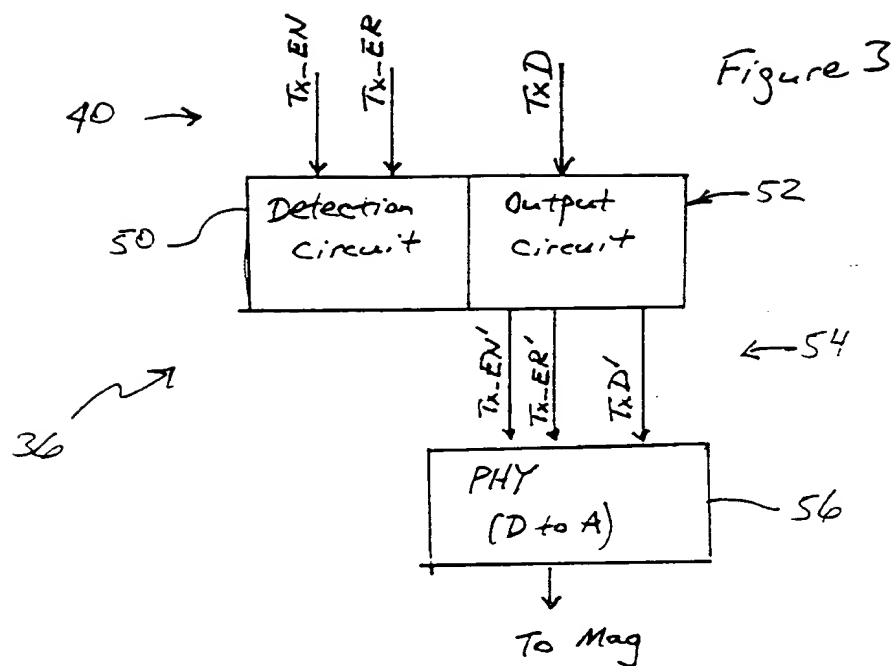 Figure 3
Tx_EN
Tx_ER
TxD
40
50
Detection
Circuit
Output
Circuit
52
54
Tx_EN'
Tx_ER'
TxD'
36
PHY
(D to A)
56
To Mag